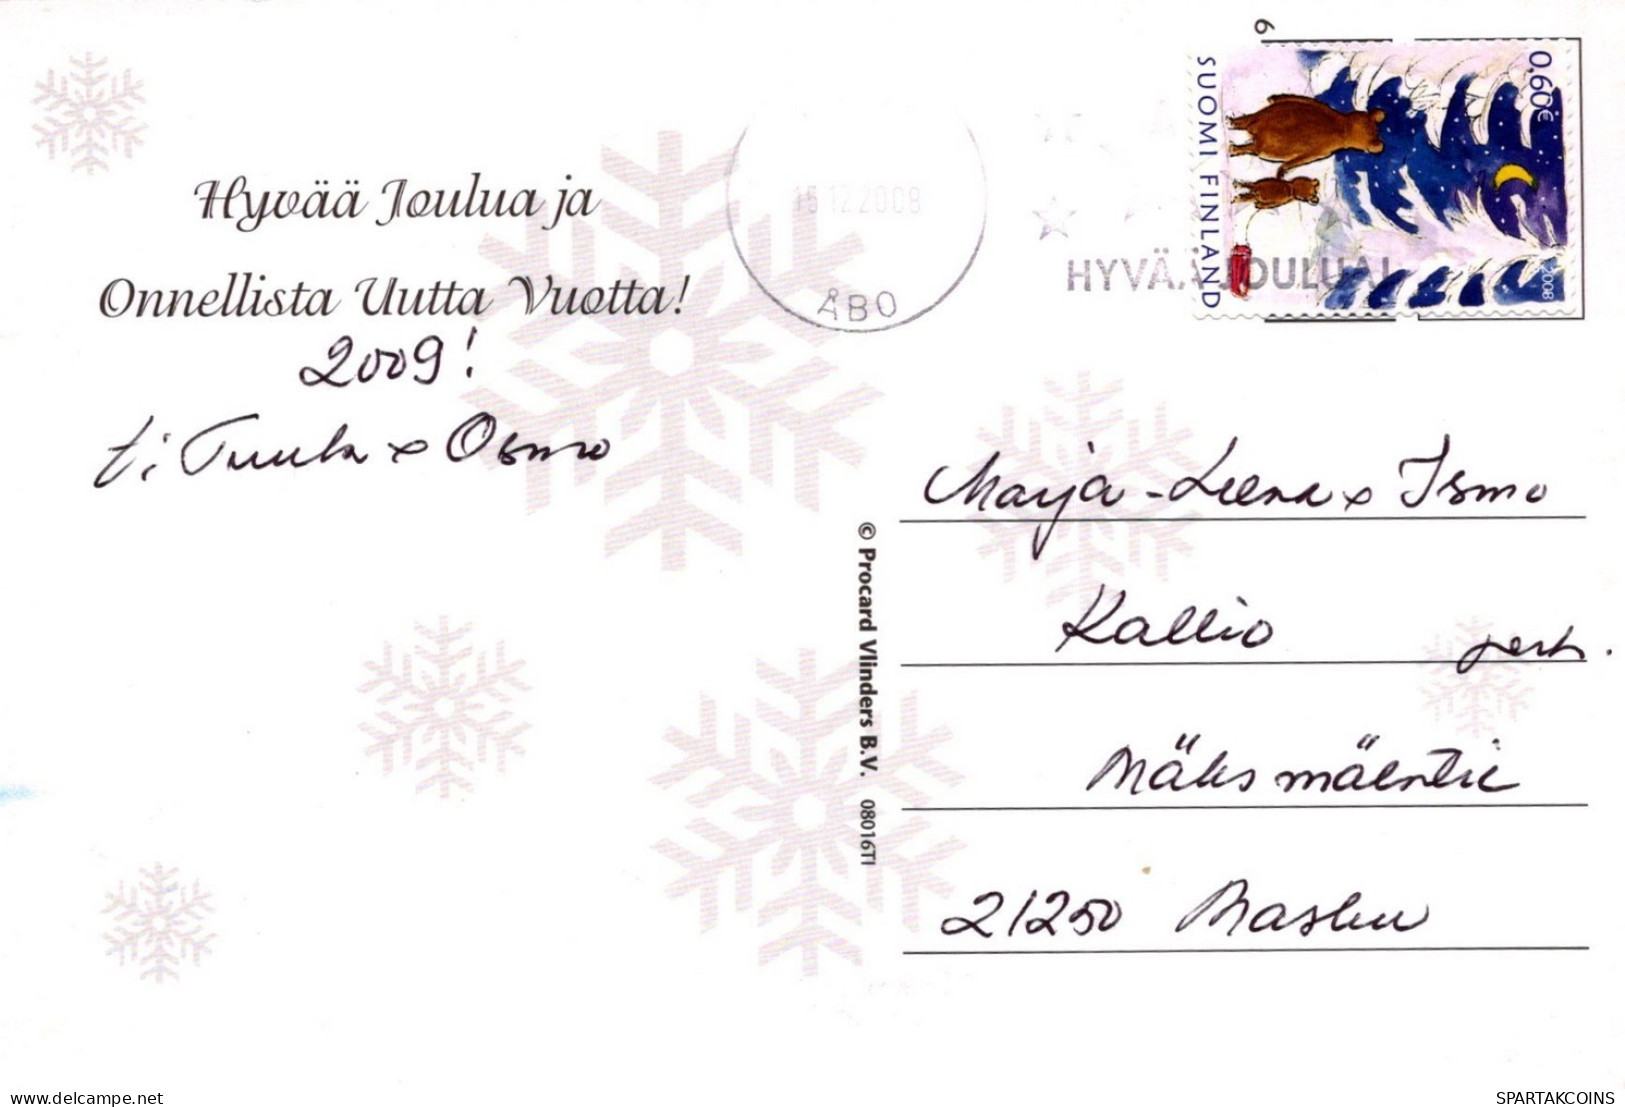 Hyvää Joulua ja
Onnellista Uutta Vuotta!
2009!
t: Tuula & Osmo
15 12 2008
ÅBO
HYVÄÄ JOULUA!
6
SUOMI FINLAND
0,60€
2008
© Procard Vlinders B.V. 08016TI
Marja-Leena & Ismo
Kallio perh.
21250 Masku
delcampe.net
SPARTAKCOINS